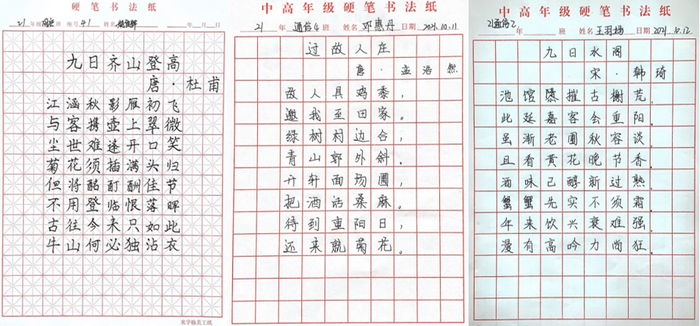 硬笔书法纸
21年 座号41 姓名 年 月 日
九日齐山登高
唐·杜甫
江涵秋影雁初飞
与客携壶上翠微
尘世难逢开口笑
菊花须插满头归
但将酩酊酬佳节
不用登临恨落晖
古往今来只如此
牛山何必独沾衣
米字格美工纸
中高年级硬笔书法纸
21年 通信4班 姓名 邓慧丹 日期 2021.10.11
过故人庄
唐·孟浩然
故人具鸡黍，
邀我至田家。
绿树村边合，
青山郭外斜。
开轩面场圃，
把酒话桑麻。
待到重阳日，
还来就菊花。
中高年级硬笔书法纸
21通信2 年 班 姓名 王羽 日期 2021.10.12
九日水阁
宋·韩琦
池馆隳摧古榭荒，
此延嘉客会重阳。
虽惭老圃秋容谈，
且看黄花晚节香。
酒味已醇新过熟，
蟹螯先实不须霜。
年来饮兴衰难强，
漫有高吟力尚狂。